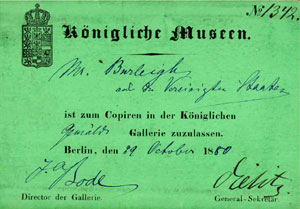 No 1342.
Königliche Museen.
Mr. Burleigh
aus den Vereinigten Staaten
ist zum Copiren in der Königlichen
Gemälde Gallerie zuzulassen.
Berlin, den 29 October 1880
J. A. Bode
Director der Gallerie.
Dielitz
General-Sekretär.